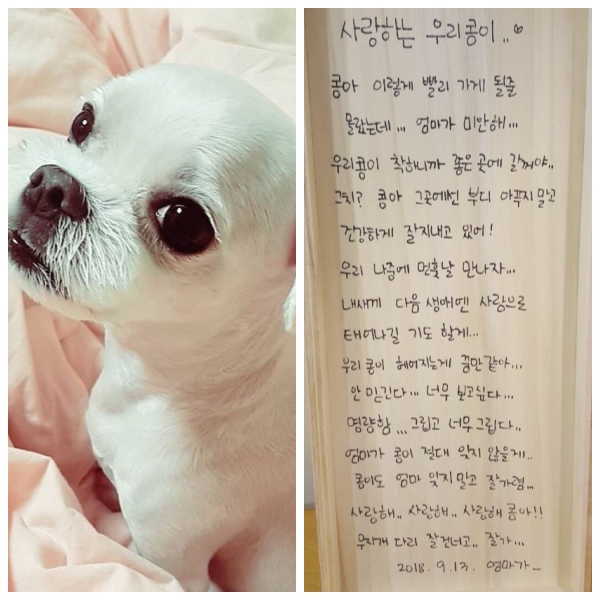 사랑하는 우리콩이..♡
콩아 이렇게 빨리 가게 될줄
몰랐는데... 엄마가 미안해...
우리콩이 착하니까 좋은곳에 갈꺼야..
그치? 콩아 그곳에선 부디 아푸지말고
건강하게 잘지내고 있어!
우리 나중에 먼훗날 만나자...
내새끼 다음 생애엔 사랑으로
태어나길 기도 할게...
우리콩이 헤어지는게 꿈만같아...
안 믿긴다... 너무 보고싶다...
명량함... 그립고 너무그립다..
엄마가 콩이 절대 잊지 않을게..
콩이도 엄마 잊지말고 잘가렴...
사랑해.. 사랑해.. 사랑해 콩아!!
무지개 다리 잘건너고.. 잘가...
2018. 9. 13. 엄마가_